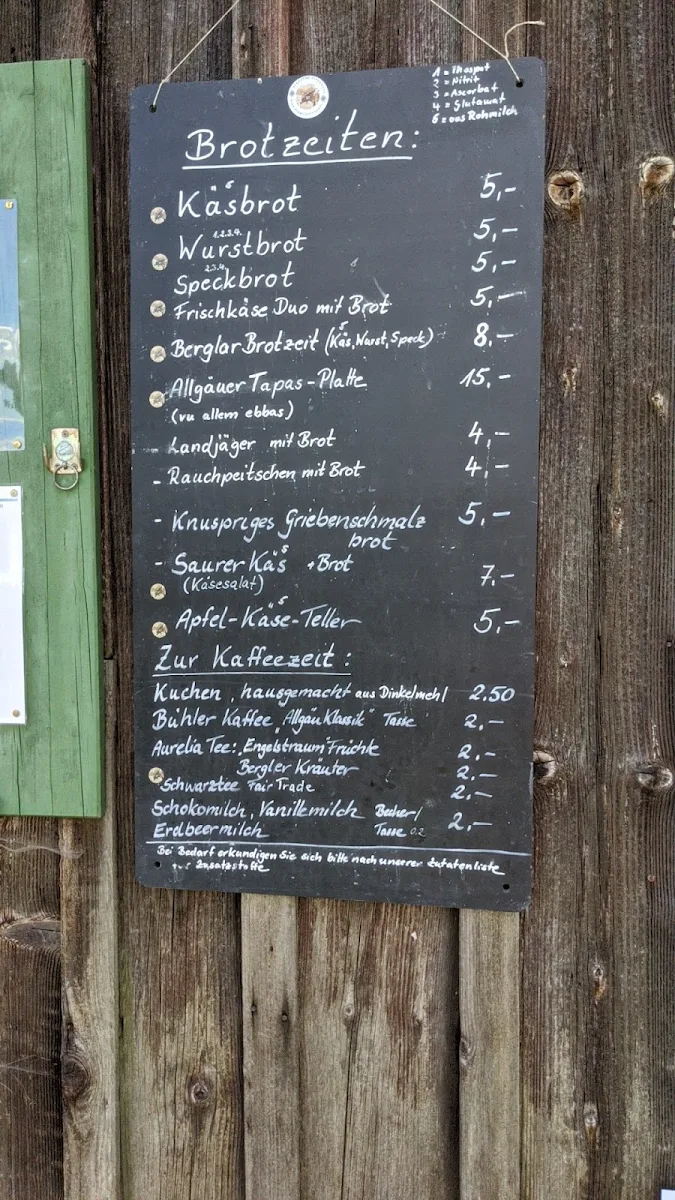 1 = Phospat
2 = Nitrit
3 = Ascorbat
4 = Glutamat
5 = aus Rohmilch
Brotzeiten:
5
Käsbrot 5,-
1.2.3.4.
Wurstbrot 5,-
2,3,4
Speckbrot 5,-
Frischkäse Duo mit Brot 5,-
5
Berglar Brotzeit (Käs, Wurst, Speck) 8,-
Allgäuer Tapas-Platte 15,-
(vu allem ebbas)
Landjäger mit Brot 4,-
- Rauchpeitschen mit Brot 4,-
- Knuspriges Griebenschmalz 5,-
brot
5
- Saurer Käs + Brot
(Käsesalat) 7,-
5
Apfel-Käse-Teller 5,-
Zur Kaffeezeit:
Kuchen, hausgemacht aus Dinkelmehl 2.50
Bühler Kaffee "Allgäu Klassik" Tasse 2,-
Aurelia Tee: "Engelstraum" Früchte 2,-
Bergler Kräuter 2,-
Schwarztee Fair Trade 2,-
Schokomilch, Vanillemilch Becher/
Erdbeermilch Tasse 0.2 2,-
Bei Bedarf erkundigen Sie sich bitte nach unserer Zutatenliste
Zusatzstoffe